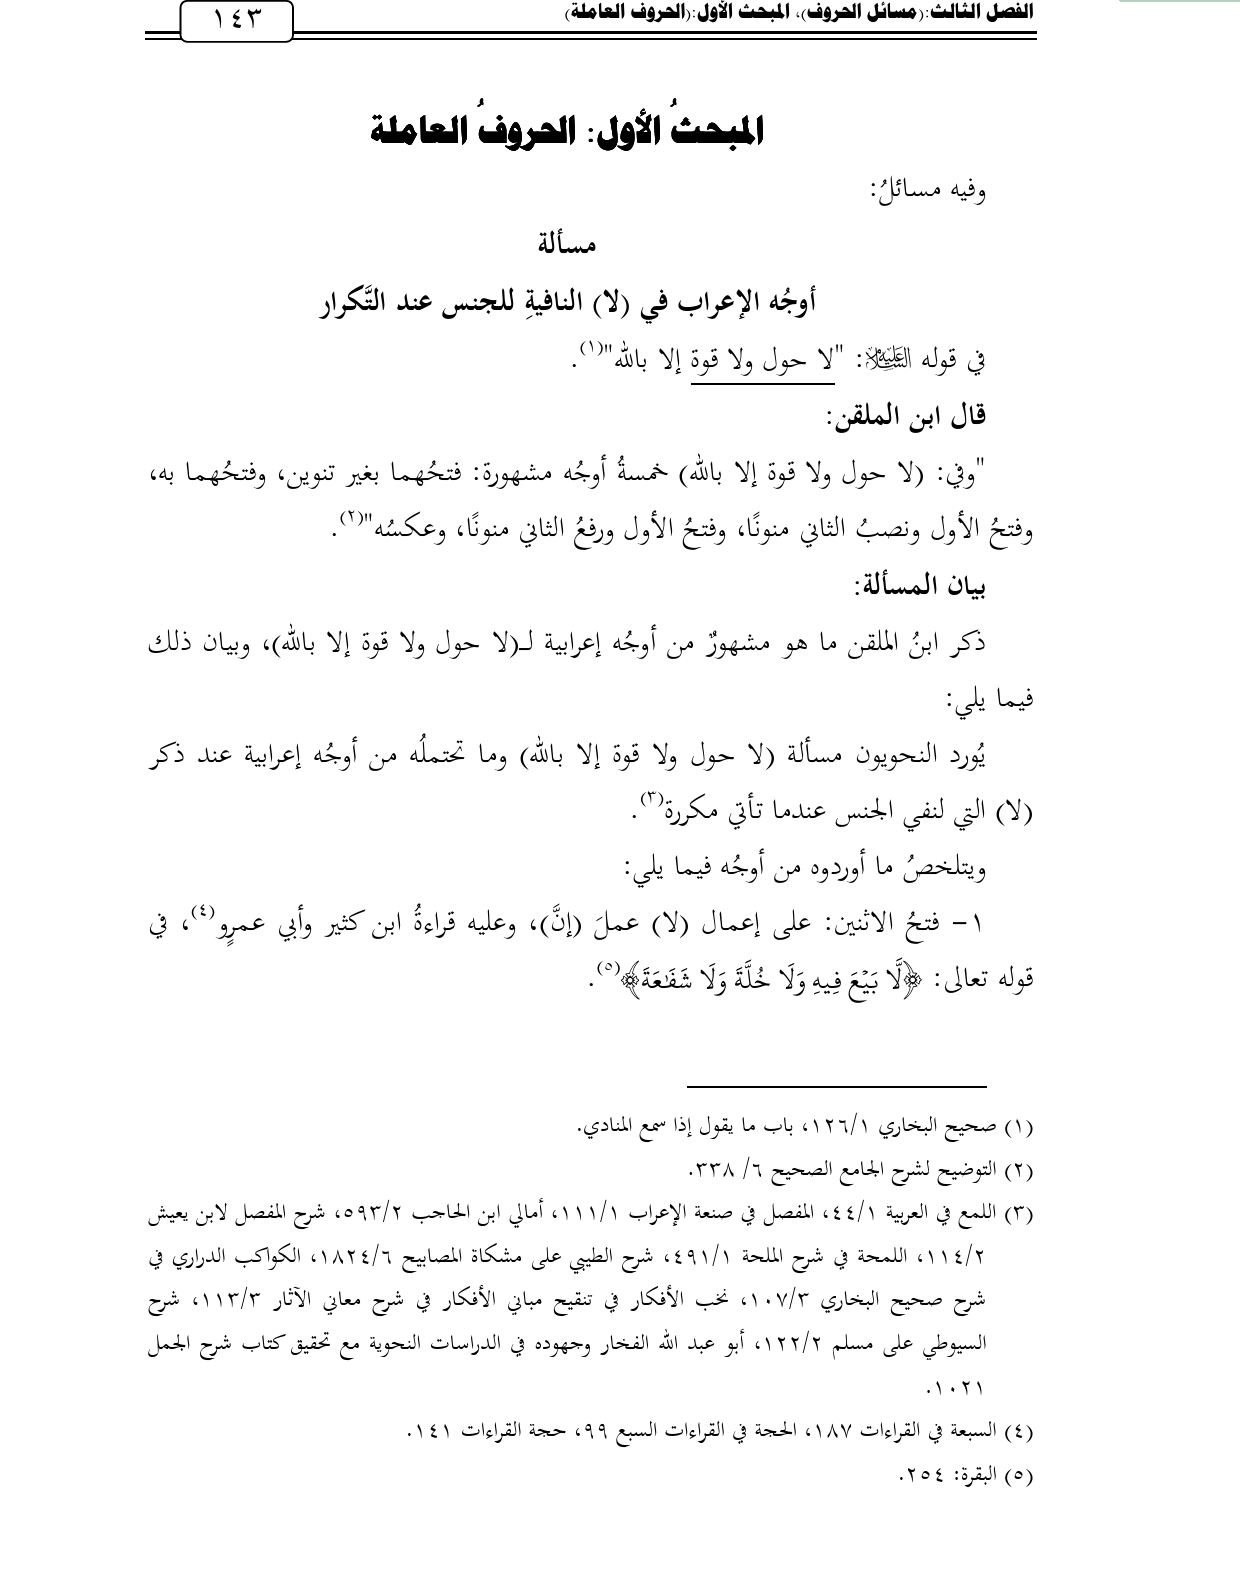 الفصل الثالث:(مسائل الحروف)، المبحث الأول:(الحروف العاملة)
١٤٣
المبحثُ الأول: الحروفُ العاملة
وفيه مسائلُ:
مسألة
أوجُه الإعراب في (لا) النافيةِ للجنس عند التَّكرار
في قوله عليه السلام: "لا حول ولا قوة إلا بالله"(١).
قال ابن الملقن:
"وفي: (لا حول ولا قوة إلا بالله) خمسةُ أوجُه مشهورة: فتحُهما بغير تنوين، وفتحُهما به،
وفتحُ الأول ونصبُ الثاني منونًا، وفتحُ الأول ورفعُ الثاني منونًا، وعكسُه"(٢).
بيان المسألة:
ذكر ابنُ الملقن ما هو مشهورٌ من أوجُه إعرابية لـ(لا حول ولا قوة إلا بالله)، وبيان ذلك
فيما يلي:
يُورد النحويون مسألة (لا حول ولا قوة إلا بالله) وما تحتملُه من أوجُه إعرابية عند ذكر
(لا) التي لنفي الجنس عندما تأتي مكررة(٣).
ويتلخصُ ما أوردوه من أوجُه فيما يلي:
١- فتحُ الاثنين: على إعمال (لا) عملَ (إنَّ)، وعليه قراءةُ ابن كثير وأبي عمرٍو(٤)، في
قوله تعالى: ﴿لَّا بَيْعَ فِيهِ وَلَا خُلَّةَ وَلَا شَفَٰعَةَ﴾(٥).
(١) صحيح البخاري ١٢٦/١، باب ما يقول إذا سمع المنادي.
(٢) التوضيح لشرح الجامع الصحيح ٦/ ٣٣٨.
(٣) اللمع في العربية ٤٤/١، المفصل في صنعة الإعراب ١١١/١، أمالي ابن الحاجب ٥٩٣/٢، شرح المفصل لابن يعيش
١١٤/٢، اللمحة في شرح الملحة ٤٩١/١، شرح الطيبي على مشكاة المصابيح ١٨٢٤/٦، الكواكب الدراري في
شرح صحيح البخاري ١٠٧/٣، نخب الأفكار في تنقيح مباني الأفكار في شرح معاني الآثار ١١٣/٣، شرح
السيوطي على مسلم ١٢٢/٢، أبو عبد الله الفخار وجهوده في الدراسات النحوية مع تحقيق كتاب شرح الجمل
١٠٢١.
(٤) السبعة في القراءات ١٨٧، الحجة في القراءات السبع ٩٩، حجة القراءات ١٤١.
(٥) البقرة: ٢٥٤.